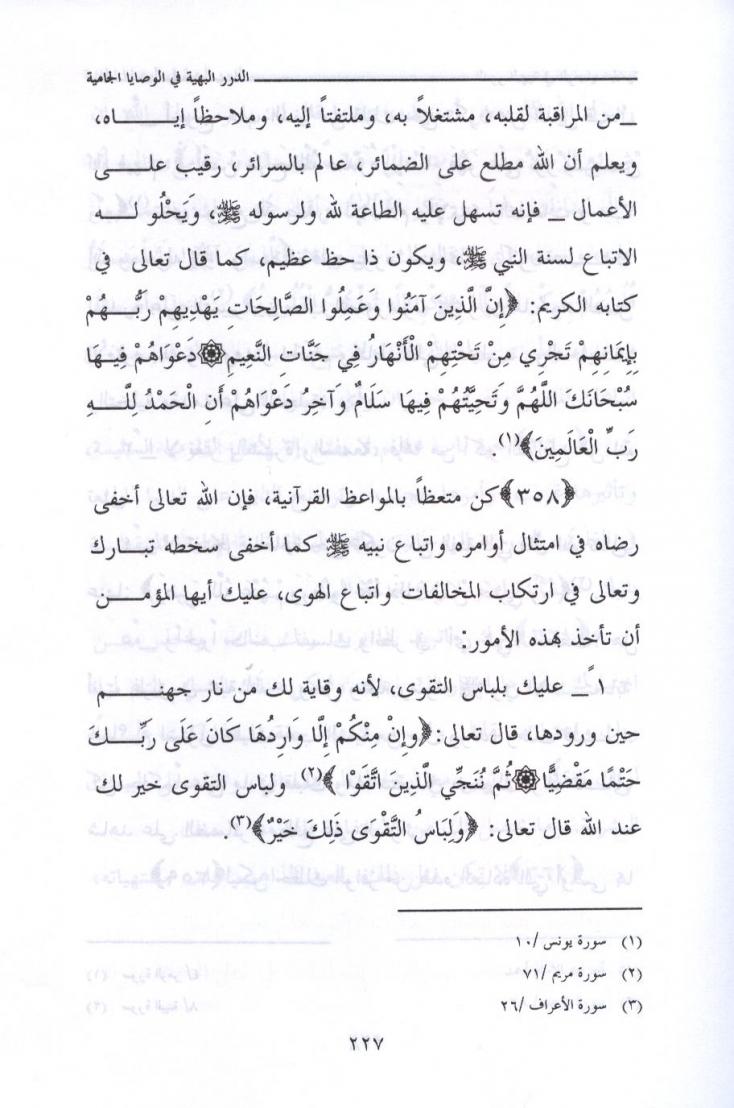 الدرر البهية في الوصايا الجامية
ــ من المراقبة لقلبه، مشتغلاً به، وملتفتاً إليه، وملاحظاً إيـــــاه،
ويعلم أن الله مطلع على الضمائر، عالم بالسرائر، رقيب علـــى
الأعمال ــ فإنه تسهل عليه الطاعة لله ولرسوله ﷺ، وَيَحْلُو لـــه
الاتباع لسنة النبي ﷺ، ويكون ذا حظ عظيم، كما قال تعالى في
كتابه الكريم: ﴿إِنَّ الَّذِينَ آمَنُوا وَعَمِلُوا الصَّالِحَاتِ يَهْدِيهِمْ رَبُّـــهُمْ
بِإِيمَانِهِمْ تَجْرِي مِنْ تَحْتِهِمُ الْأَنْهَارُ فِي جَنَّاتِ النَّعِيمِ۞دَعْوَاهُمْ فِيـهَا
سُبْحَانَكَ اللَّهُمَّ وَتَحِيَّتُهُمْ فِيهَا سَلَامٌ وَآخِرُ دَعْوَاهُمْ أَنِ الْحَمْدُ لِلَّـــهِ
رَبِّ الْعَالَمِينَ﴾(١).
﴿٣٥٨﴾كن متعظاً بالمواعظ القرآنية، فإن الله تعالى أخفى
رضاه في امتثال أوامره واتباع نبيه ﷺ كما أخفى سخطه تبـــارك
وتعالى في ارتكاب المخالفات واتباع الهوى، عليك أيها المؤمـــن
أن تأخذ بهذه الأمور:
١ً ــ عليك بلباس التقوى، لأنه وقاية لك من نار جهنـــم
حين ورودها، قال تعالى:﴿وإِنْ مِنْكُمْ إِلَّا وَارِدُهَا كَانَ عَلَى رَبِّـــكَ
حَتْمًا مَقْضِيًّا۞ثُمَّ نُنَجِّي الَّذِينَ اتَّقَوْا ﴾(٢) ولباس التقوى خير لك
عند الله قال تعالى: ﴿وَلِبَاسُ التَّقْوَى ذَلِكَ خَيْرٌ﴾(٣).
(١) سورة يونس /١٠
(٢) سورة مريم /٧١
(٣) سورة الأعراف /٢٦
٢٢٧